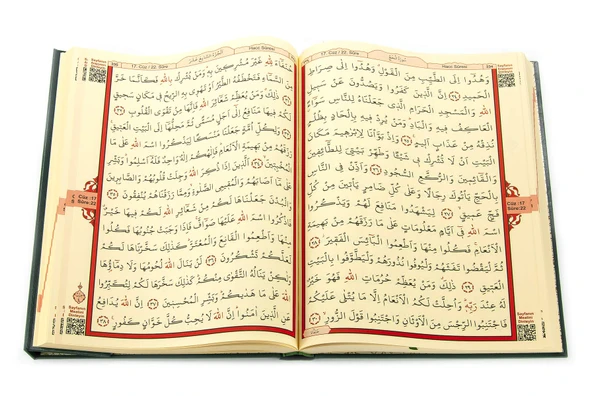 17. Cüz / 22. Sûre
سورة الحج
Hacc Sûresi
334
Sayfanın Mealini Dinleyin
وَهُدُٓوا اِلَى الطَّيِّبِ مِنَ الْقَوْلِ وَهُدُٓوا اِلٰى صِرَاطِ
الْحَمِيدِ ﴿٢٤﴾ اِنَّ الَّذِينَ كَفَرُوا وَيَصُدُّونَ عَنْ سَبِيلِ
اللّٰهِ وَالْمَسْجِدِ الْحَرَامِ الَّذِي جَعَلْنَاهُ لِلنَّاسِ سَوَٓاءً
الْعَاكِفُ فِيهِ وَالْبَادِ وَمَنْ يُرِدْ فِيهِ بِاِلْحَادٍ بِظُلْمٍ
نُذِقْهُ مِنْ عَذَابٍ اَلِيمٍ ﴿٢٥﴾ وَاِذْ بَوَّأْنَا لِاِبْرٰهِيمَ مَكَانَ
الْبَيْتِ اَنْ لَا تُشْرِكْ بِي شَيْئًا وَطَهِّرْ بَيْتِيَ لِلطَّٓائِفِينَ
وَالْقَٓائِمِينَ وَالرُّكَّعِ السُّجُودِ ﴿٢٦﴾ وَاَذِّنْ فِي النَّاسِ
بِالْحَجِّ يَأْتُوكَ رِجَالًا وَعَلٰى كُلِّ ضَامِرٍ يَأْتِينَ مِنْ كُلِّ
فَجٍّ عَمِيقٍ ﴿٢٧﴾ لِيَشْهَدُوا مَنَافِعَ لَهُمْ وَيَذْكُرُوا
اسْمَ اللّٰهِ فِٓي اَيَّامٍ مَعْلُومَاتٍ عَلٰى مَا رَزَقَهُمْ مِنْ بَهِيمَةِ
الْاَنْعَامِ فَكُلُوا مِنْهَا وَاَطْعِمُوا الْبَٓائِسَ الْفَقِيرَ ﴿٢٨﴾
ثُمَّ لْيَقْضُوا تَفَثَهُمْ وَلْيُوفُوا نُذُورَهُمْ وَلْيَطَّوَّفُوا بِالْبَيْتِ
الْعَتِيقِ ﴿٢٩﴾ ذٰلِكَ وَمَنْ يُعَظِّمْ حُرُمَاتِ اللّٰهِ فَهُوَ خَيْرٌ
لَهُ عِنْدَ رَبِّهِ وَاُحِلَّتْ لَكُمُ الْاَنْعَامُ اِلَّا مَا يُتْلٰى عَلَيْكُمْ
فَاجْتَنِبُوا الرِّجْسَ مِنَ الْاَوْثَانِ وَاجْتَنِبُوا قَوْلَ الزُّورِ ﴿٣٠﴾
Cüz :17
Sûre:22
Sayfanın Mealini Dinleyin
حنفاء
335
17. Cüz / 22. Sûre
الجزء السابع عشر
Hacc Sûresi
Sayfanın Mealini Dinleyin
حُنَفَٓاءَ لِلّٰهِ غَيْرَ مُشْرِكِينَ بِهِ وَمَنْ يُشْرِكْ بِاللّٰهِ فَكَاَنَّمَا خَرَّ
مِنَ السَّمَٓاءِ فَتَخْطَفُهُ الطَّيْرُ اَوْ تَهْوِي بِهِ الرِّيحُ فِي مَكَانٍ سَحِيقٍ
﴿٣١﴾ ذٰلِكَ وَمَنْ يُعَظِّمْ شَعَٓائِرَ اللّٰهِ فَاِنَّهَا مِنْ تَقْوَى الْقُلُوبِ ﴿٣٢﴾
لَكُمْ فِيهَا مَنَافِعُ اِلٰٓى اَجَلٍ مُسَمًّى ثُمَّ مَحِلُّهَٓا اِلَى الْبَيْتِ الْعَتِيقِ
﴿٣٣﴾ وَلِكُلِّ اُمَّةٍ جَعَلْنَا مَنْسَكًا لِيَذْكُرُوا اسْمَ اللّٰهِ عَلٰى مَا
رَزَقَهُمْ مِنْ بَهِيمَةِ الْاَنْعَامِ فَاِلٰهُكُمْ اِلٰهٌ وَاحِدٌ فَلَهُٓ اَسْلِمُوا وَبَشِّرِ
الْمُخْبِتِينَ ﴿٣٤﴾ اَلَّذِينَ اِذَا ذُكِرَ اللّٰهُ وَجِلَتْ قُلُوبُهُمْ وَالصَّابِرِينَ
عَلٰى مَٓا اَصَابَهُمْ وَالْمُقِيمِي الصَّلٰوةِ وَمِمَّا رَزَقْنَاهُمْ يُنْفِقُونَ ﴿٣٥﴾
وَالْبُدْنَ جَعَلْنَاهَا لَكُمْ مِنْ شَعَٓائِرِ اللّٰهِ لَكُمْ فِيهَا خَيْرٌ
فَاذْكُرُوا اسْمَ اللّٰهِ عَلَيْهَا صَوَٓافَّ فَاِذَا وَجَبَتْ جُنُوبُهَا فَكُلُوا
مِنْهَا وَاَطْعِمُوا الْقَانِعَ وَالْمُعْتَرَّ كَذٰلِكَ سَخَّرْنَاهَا لَكُمْ
لَعَلَّكُمْ تَشْكُرُونَ ﴿٣٦﴾ لَنْ يَنَالَ اللّٰهَ لُحُومُهَا وَلَا دِمَٓاؤُ۬هَا
وَلٰكِنْ يَنَالُهُ التَّقْوٰى مِنْكُمْ كَذٰلِكَ سَخَّرَهَا لَكُمْ لِتُكَبِّرُوا
اللّٰهَ عَلٰى مَا هَدٰيكُمْ وَبَشِّرِ الْمُحْسِنِينَ ﴿٣٧﴾ اِنَّ اللّٰهَ يُدَافِعُ
عَنِ الَّذِينَ اٰمَنُوا اِنَّ اللّٰهَ لَا يُحِبُّ كُلَّ خَوَّانٍ كَفُورٍ ﴿٣٨﴾
Cüz :17
Sûre:22
Sayfanın Mealini Dinleyin